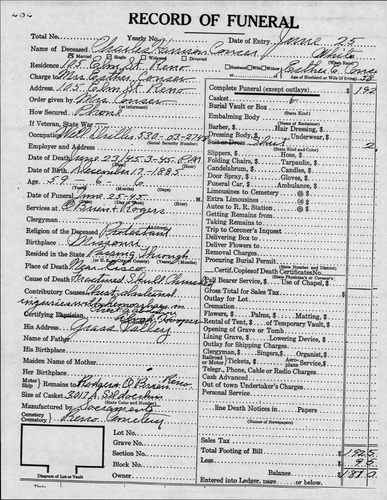 RECORD OF FUNERAL
Total No. Yearly No. Date of Entry June 25
Name of Deceased Charles Conser White
Married Single Widowed Divorced
Residence 105 Elm St. Reno Husband Wife Widow of Esther C. Conser
Charge to Mrs. Esther Conser
Address 105 Elm St. Reno
Order given by Mrs. Conser
How Secured Phone
If Veteran, State War
Occupation Well Driller 530-03-
Employer and Address
Date of Death June 23, 1945 3:45 P.M.
Date of Birth December 17-1885
Age 59-6-6
Date of Funeral June 25-45
Services at O'Brien-Rogers
Clergyman
Religion of the Deceased Protestant
Birthplace Missouri
Resided in the State Passing Through
Place of Death Near Cisco
Cause of Death Fractured Skull
Contributory Cause
Certifying
His Address Grass Valley
Name of Father
His Birthplace
Maiden Name of Mother
Her Birthplace
Remains to Rodgers O'Brien Reno
Size of Casket
Manufactured by Sacramento
Cemetery Reno Cemetery
Lot No.
Grave No.
Section No.
Block No.
Owner
Diagram of Lot or Vault
Complete Funeral (except outlays) $
Casket
Burial Vault or Box
Embalming Body
Barber, $ Hair Dressing, $
Dressing Body, $ Underwear,
Suit or Dress
Slippers, $ Hose, $
Folding Chairs, $ Tarpaulin, $
Candelabrum, $ Candles, $
Door Spray, $ Gloves, $
Funeral Car, $ Ambulance, $
Limousines to Cemetery @ $
Extra Limousines @ $
Autos to R. R. Station @ $
Getting Remains from
Taking Remains to
Trip to Coroner's Inquest
Delivering Box to
Deliver Flowers to
Removal Charges
Procuring Burial Permit
Certif. Copies of Death Certificates No.
Bearer Service, $ Use of Chapel, $
Gross Total for Sales Tax
Outlay for Lot
Cremation
Flowers, $ Palms, $ Matting, $
Rental of Tent, $ of Temporary Vault, $
Opening of Grave or Tomb
Lining Grave, $ Lowering Device, $
Outlay for Shipping Charges
Clergyman, $ Singers, $ Organist, $
Tickets, $ Aeroplane Service, $
Telegr., Phone, Cable or Radio Charges
Cash Advanced
Out of town Undertaker's Charges
Personal Service
line Death Notices in Papers
(Names of Newspapers)
Sales Tax
Total Footing of Bill $
Less
Balance
Entered into Ledger, page or below.